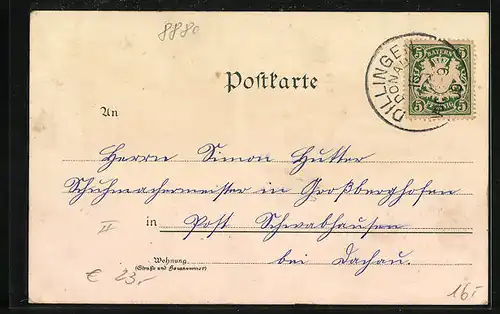 8880
DILLINGEN
DONAU
5 BAYERN 5
5 PFENNIG 5
Postkarte
An
Herrn Simon Hutter
Schuhmachermeister in Großberghofen
in Post Schwabhausen
II
Wohnung
(Straße und Hausnummer)
bei Dachau.
€ 23,-
16,-